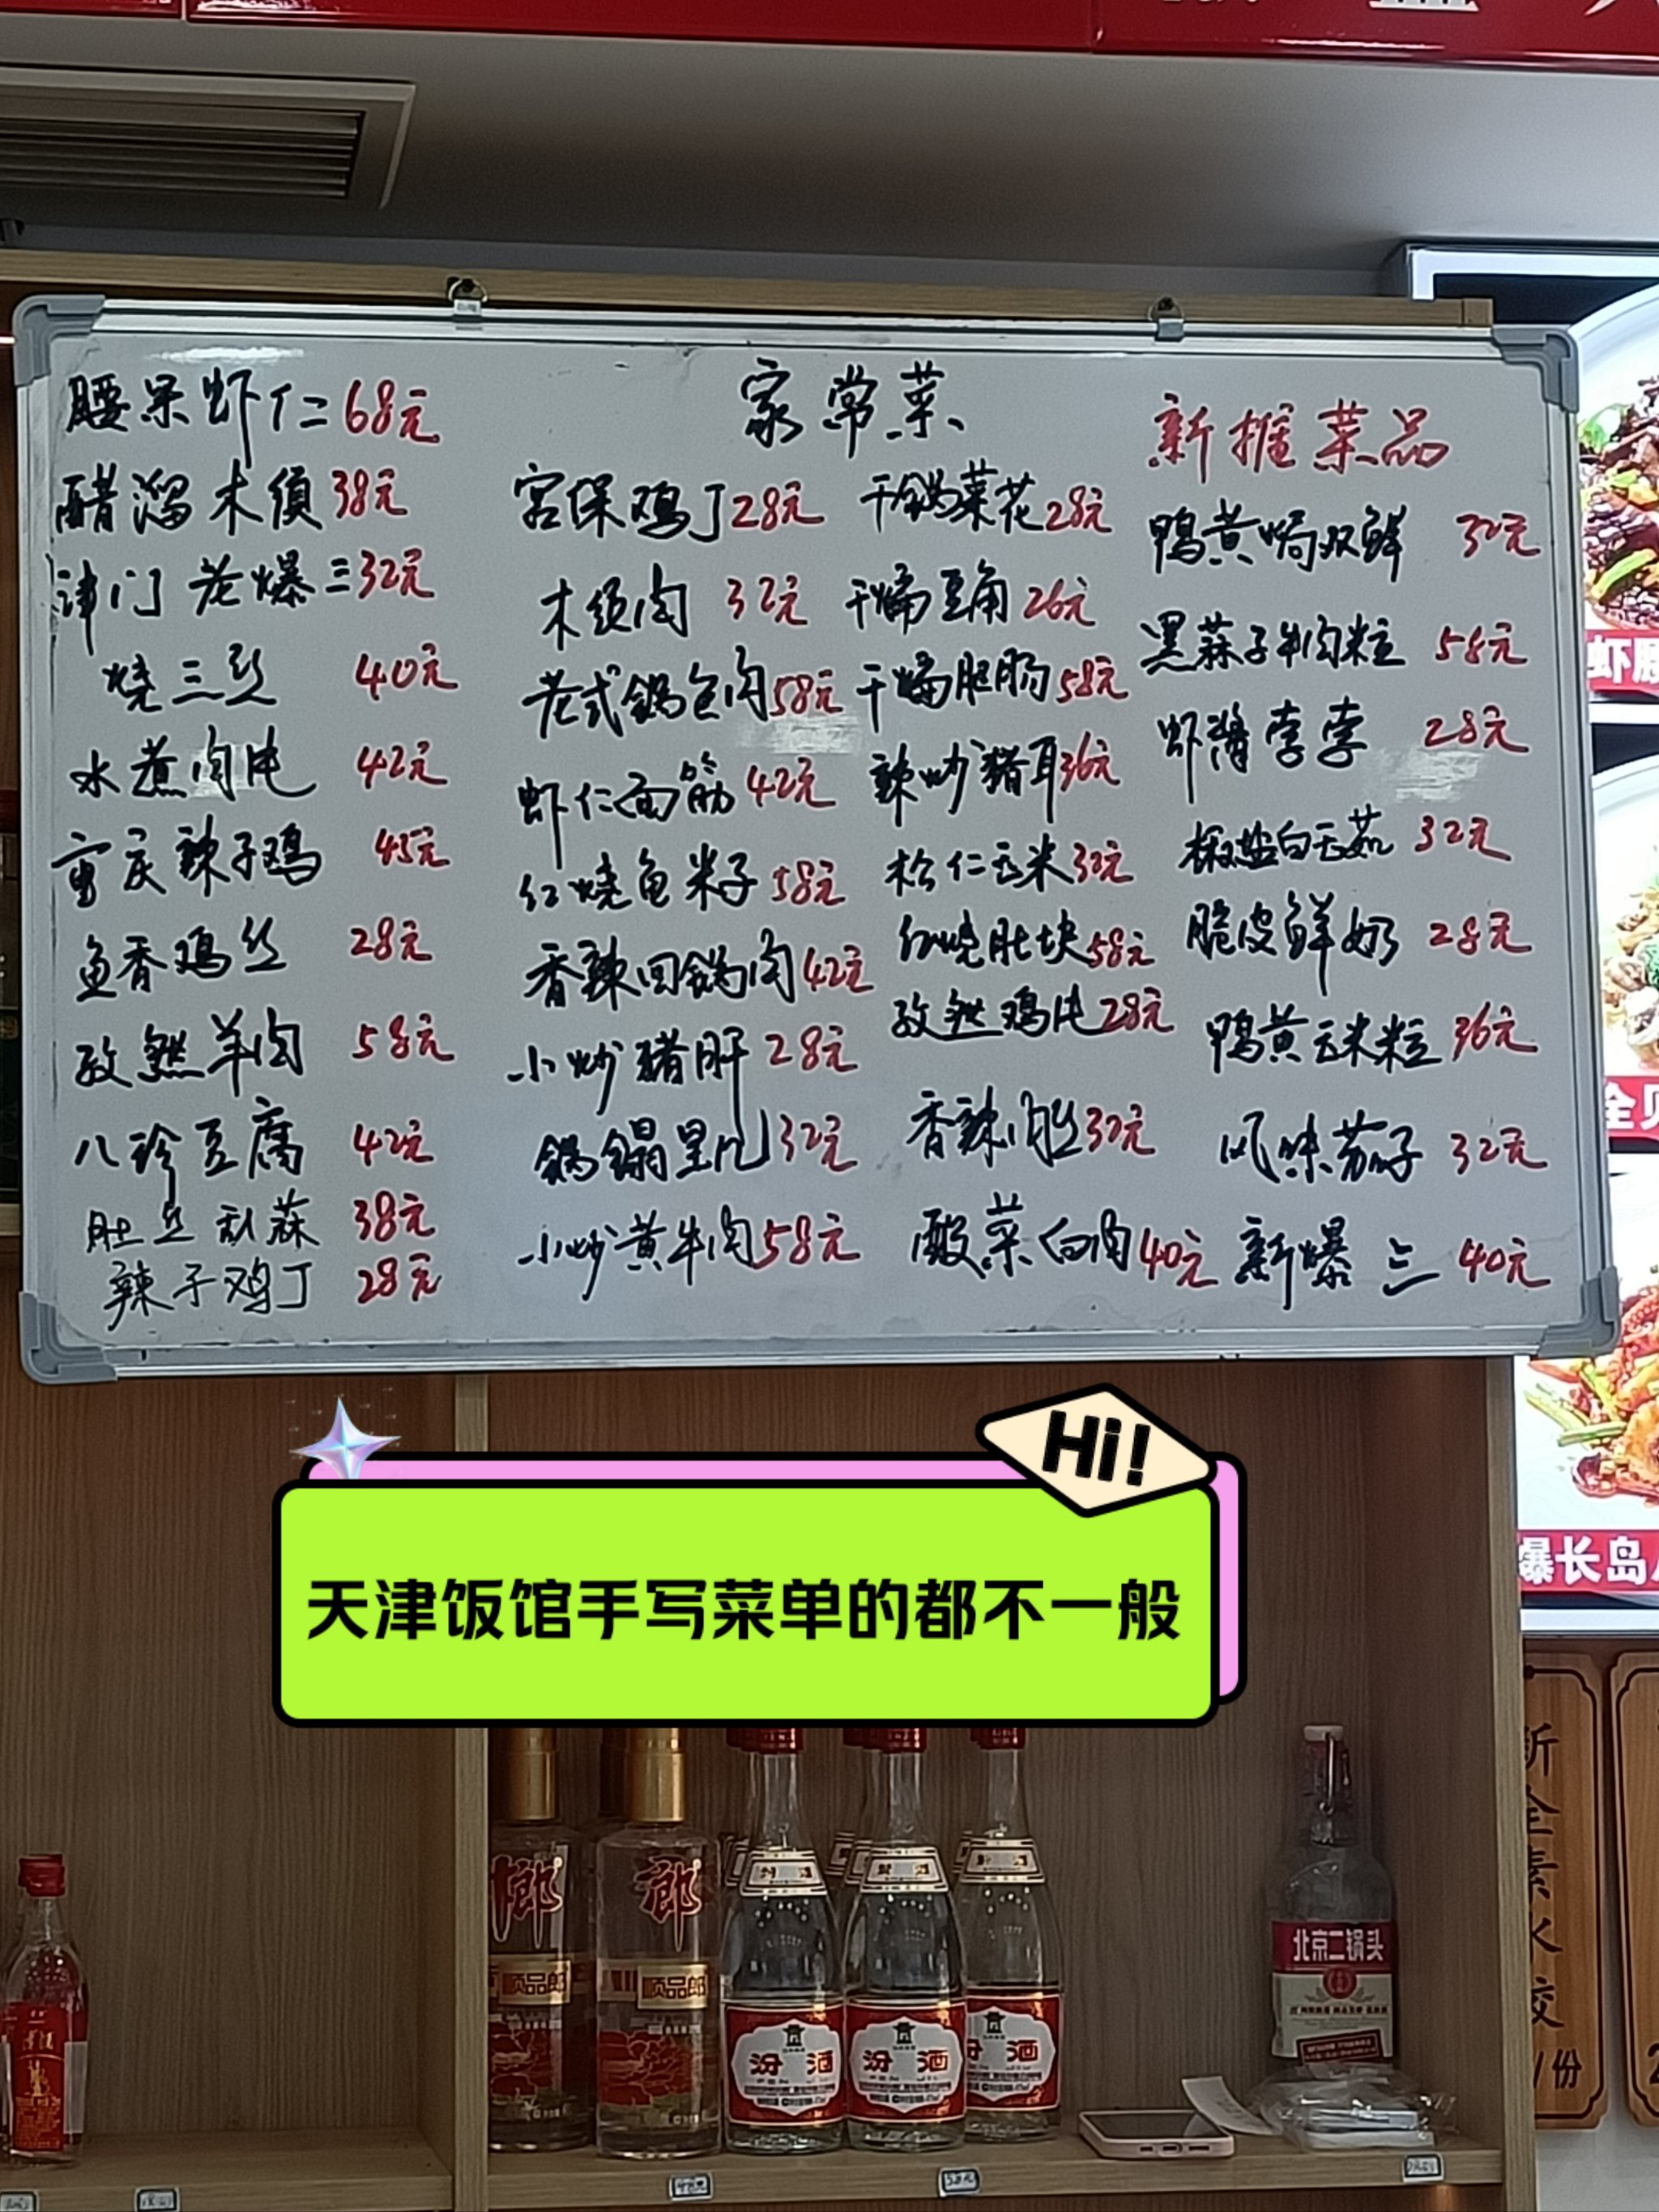 家常菜
腰果虾仁68元
醋溜木須38元
津门老爆三32元
烧三丝 40元
水煮肉片 42元
重庆辣子鸡 45元
鱼香鸡丝 28元
孜然羊肉 58元
八珍豆腐 42元
肚丝烂蒜 38元
辣子鸡丁 28元
宫保鸡丁28元
木须肉 32元
老式锅包肉58元
虾仁面筋42元
红烧鱼米子58元
香辣回锅肉42元
小炒猪肝28元
锅鳎里几32元
小炒黄牛肉58元
干锅菜花28元
干煸豆角26元
干煸肥肠58元
辣炒猪耳36元
松仁玉米32元
红烧肚块58元
孜然鸡片28元
香辣肉丝32元
酸菜白肉40元
新推菜品
鸭黄焗双鲜 32元
黑蒜子牛肉粒 58元
虾酱孛孛 28元
椒盐白玉菇 32元
脆皮鲜奶 28元
鸭黄玉米粒 36元
风味茄子 32元
新爆三 40元
Hi!
天津饭馆手写菜单的都不一般
爆长岛
郎
顺品郎
郎
顺品郎
汾酒
汾酒
汾酒
北京二锅头
新全素水饺
/份